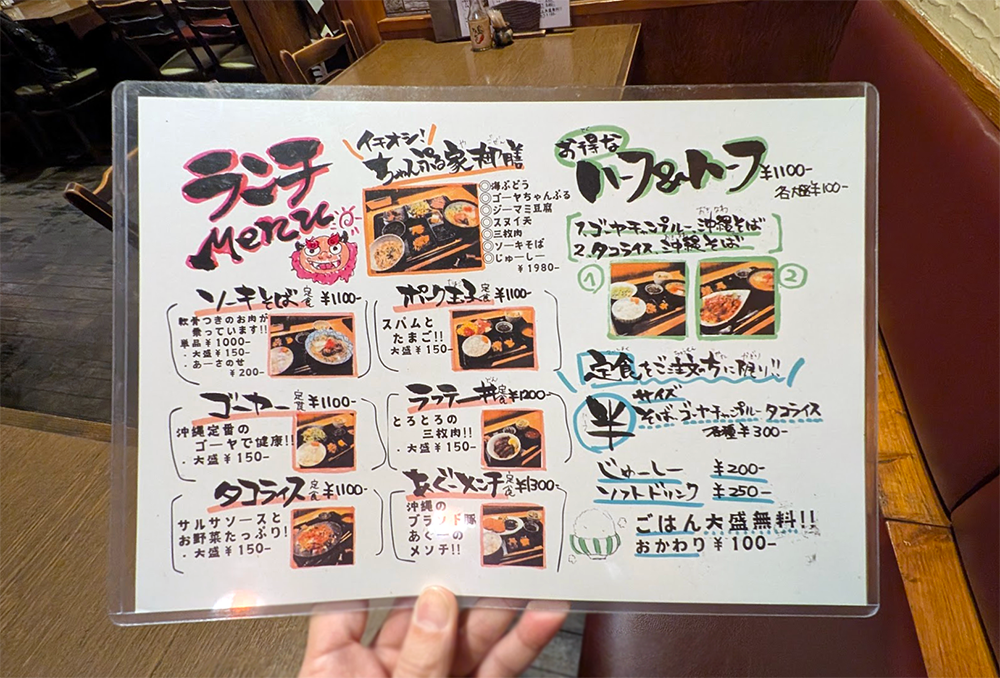 ランチ
Menu
イチオシ!
ちゃんぷる家御膳
◎海ぶどう
◎ゴーヤちゃんぷる
◎ジーマミ豆腐
◎スヌイ天
◎三枚肉
◎ソーキそば
◎じゅーしー
¥1980-
ソーキそば定食 ¥1100-
軟骨つきのお肉が
乗っています!!
単品 ¥1000-
・大盛 ¥150-
・あーさのせ
¥200-
ポーク玉子定食 ¥1100-
スパムと
たまご!!
大盛 ¥150-
ゴーヤー定食 ¥1100-
沖縄定番の
ゴーヤで健康!!
・大盛 ¥150-
ラフテー丼定食 ¥1200-
とろとろの
三枚肉!!
・大盛 ¥150-
タコライス定食 ¥1100-
サルサソースと
お野菜たっぷり!
・大盛 ¥150-
あぐーメンチ定食 ¥1300-
沖縄の
ブランド豚
あぐーの
メンチ!!
お得な
ハーフ&ハーフ ¥1100-
各大盛¥100-
1.ゴーヤチャンプルー 沖縄そば
2.タコライス 沖縄そば
① ②
定食をご注文の方に限り!!
半サイズ
そば ゴーヤチャンプルー タコライス
各種 ¥300-
じゅーしー ¥200-
ソフトドリンク ¥250-
ごはん大盛無料!!
おかわり ¥100-